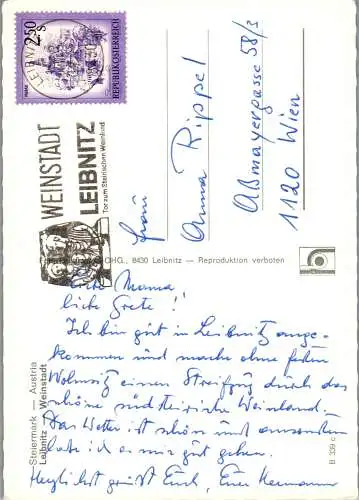 2.50
S
REPUBLIK ÖSTERREICH
WEINSTADT
LEIBNITZ
Tor zum Steirischen Weinland
Frau
Anna Rippel
Aßmayergasse 58/3
1120 Wien
OHG., 8430 Leibnitz — Reproduktion verboten
Steiermark — Austria
Leibnitz — Weinstadt
B 339 c
Liebe Mama
liebe Grete!
Ich bin gut in Leibnitz ange-
kommen und mache ohne festen
Wohnsitz einen Streifzug durch das
schöne südsteirische Weinland.
Das Wetter ist schön und ansonsten
lasse ich es mir gut gehen.
Herzlichst grüßt Euch, Euer Hermann